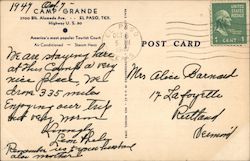 1949 Oct 7 -
CAMP GRANDE
3700 Blk. Alameda Ave. EL PASO, TEX.
Highway U.S. 80
America's most popular Tourist Court
Air-Conditioned Steam Heat
POST CARD
We are staying here
at this Camp a very
nice place. We
drove 335 miles
Enjoying our trip
but very warm
Remember me to your husband
also mother
Mrs Alice Barnard
17 Lafayette
Rutland
Vermont